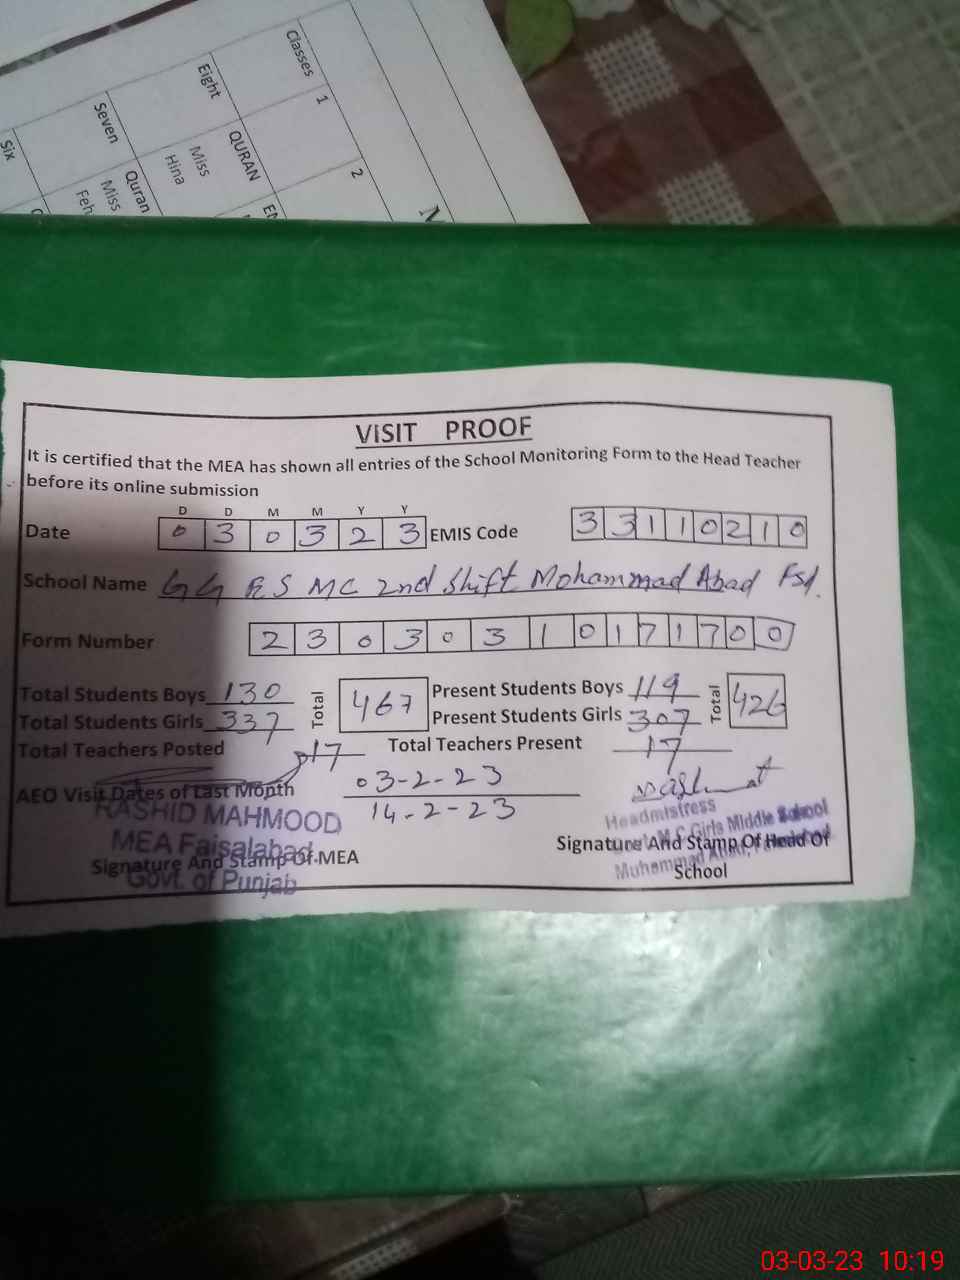 Classes 1 2
Eight QURAN
Miss
Hina
Seven Quran
Miss
Six
VISIT PROOF
It is certified that the MEA has shown all entries of the School Monitoring Form to the Head Teacher
before its online submission
D D M M Y Y
Date 0 3 0 3 2 3 EMIS Code 3 3 1 1 0 2 1 0
School Name GG E S MC 2nd Shift Mohammad Abad Fsd.
Form Number 2 3 0 3 0 3 1 0 1 7 1 7 0 0
Total Students Boys 130 Total 467 Present Students Boys 119 Total 426
Total Students Girls 337 Present Students Girls 307
Total Teachers Posted 17 Total Teachers Present 17
AEO Visit Dates of Last Month 03-2-23
14-2-23
RASHID MAHMOOD
MEA Faisalabad
Govt. of Punjab
Signature And Stamp Of MEA
Headmistress
M.C Girls Middle School
Muhammad Abad,
Signature And Stamp Of Head Of
School
03-03-23 10:19